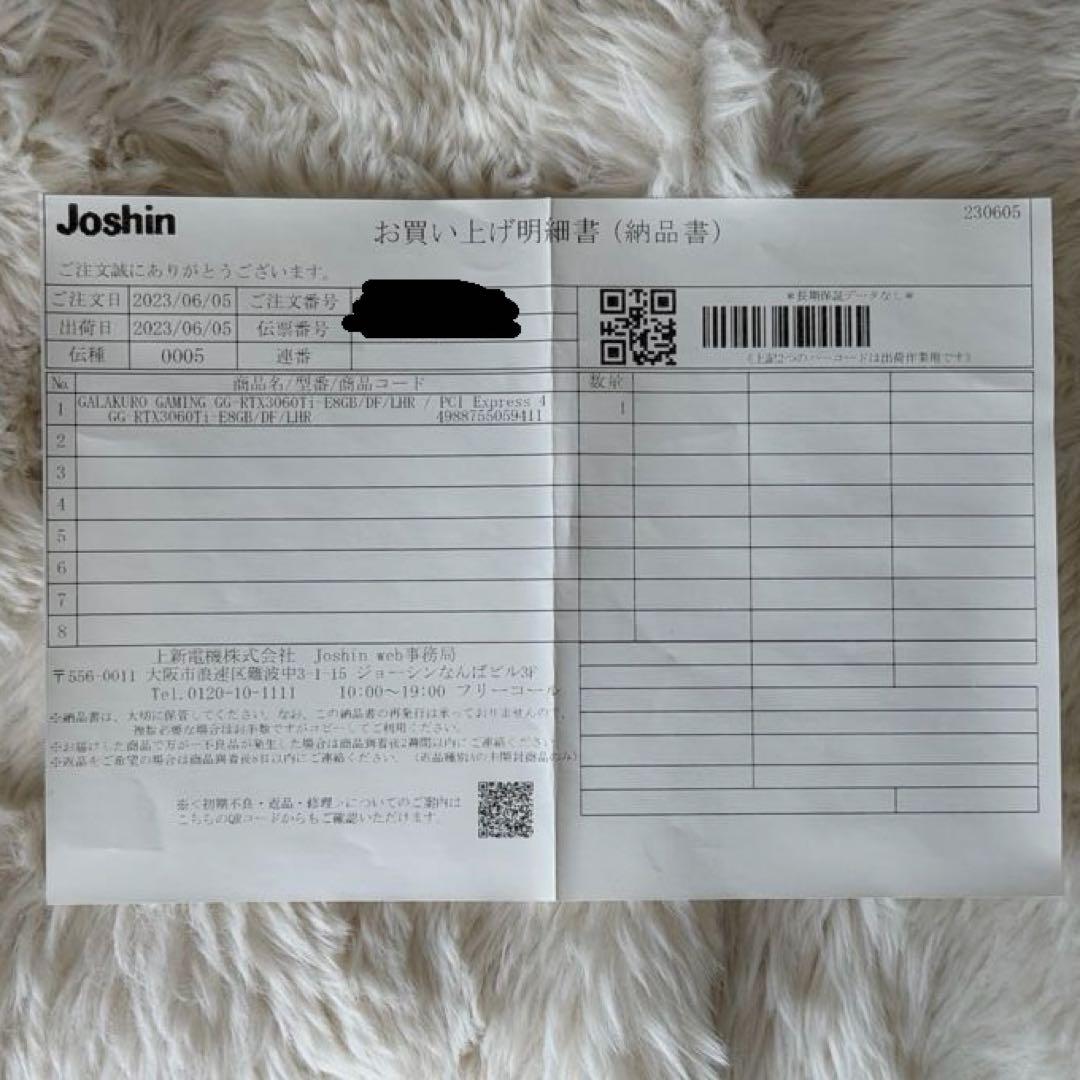 Joshin
お買い上げ明細書（納品書）
230605
ご注文誠にありがとうございます。
ご注文日 2023/06/05 ご注文番号
出荷日 2023/06/05 伝票番号
伝種 0005 連番
*長期保証データなし*
(上記2つのバーコードは出荷作業用です)
No. 商品名/型番/商品コード 数量
1 GALAKURO GAMING GG-RTX3060Ti-E8GB/DF/LHR / PCI Express 4 1
GG-RTX3060Ti-E8GB/DF/LHR 4988755059411
2
3
4
5
6
7
8
上新電機株式会社 Joshin web事務局
〒556-0011 大阪市浪速区難波中3-1-15 ジョーシンなんばビル3F
Tel.0120-10-1111 10:00〜19:00 フリーコール
※納品書は、大切に保管してください。なお、この納品書の再発行は承っておりませんので、
複数必要な場合はお手数ですがコピーしてご利用ください。
※お届けした商品で万が一不良品が発生した場合は商品到着後2週間以内にご連絡ください。
※返品をご希望の場合は商品到着後8日以内にご連絡ください。（返品種別Aの未開封商品のみ）
※＜初期不良・返品・修理＞についてのご案内は
こちらのQRコードからもご確認いただけます。